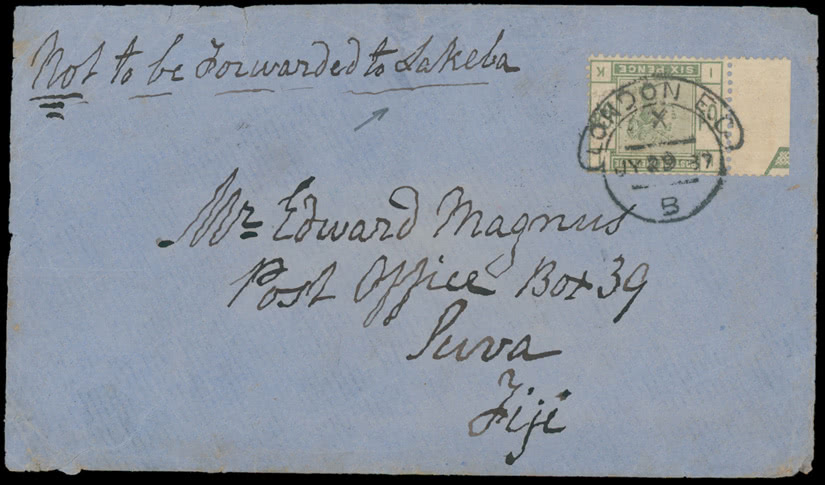 Not to be Forwarded to Lakeba
I K
SIX PENCE
LONDON E.C.
X
JY 29 87
B
Mr Edward Magnus
Post Office Box 39
Suva
Fiji